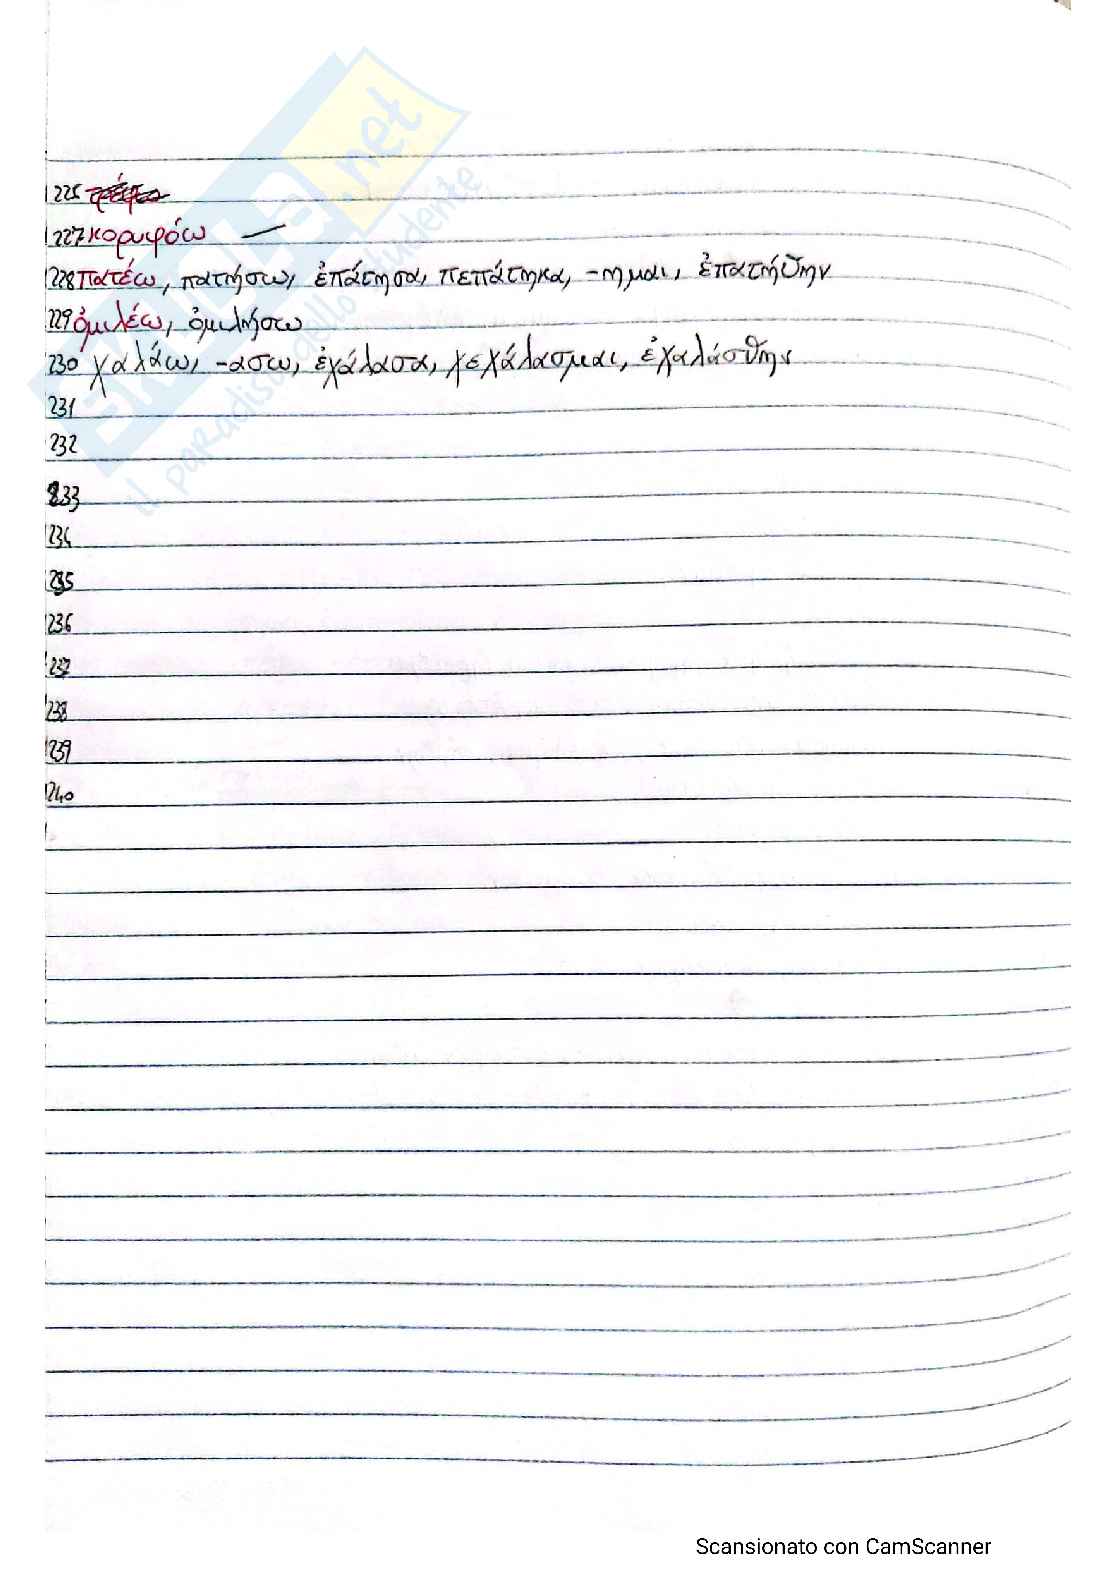 SKUOLA.net
il paradiso dello studente
225
227 κορυφόω —
228 πατέω, πατήσω, ἐπάτησα, πεπάτηκα, -ημαι, ἐπατήθην
229 ὁμιλέω, ὁμιλήσω
230 χαλάω, -ασω, ἐχάλασα, χεχάλασμαι, ἐχαλάσθην
231
232
233
234
235
236
237
238
239
240
Scansionato con CamScanner